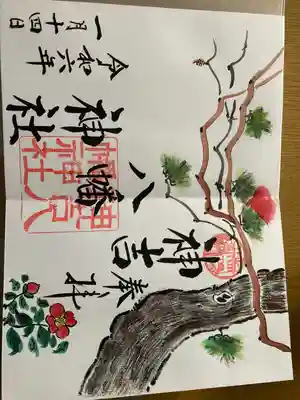 奉拝
神吉
八幡
神社
令和六年
一月十四日